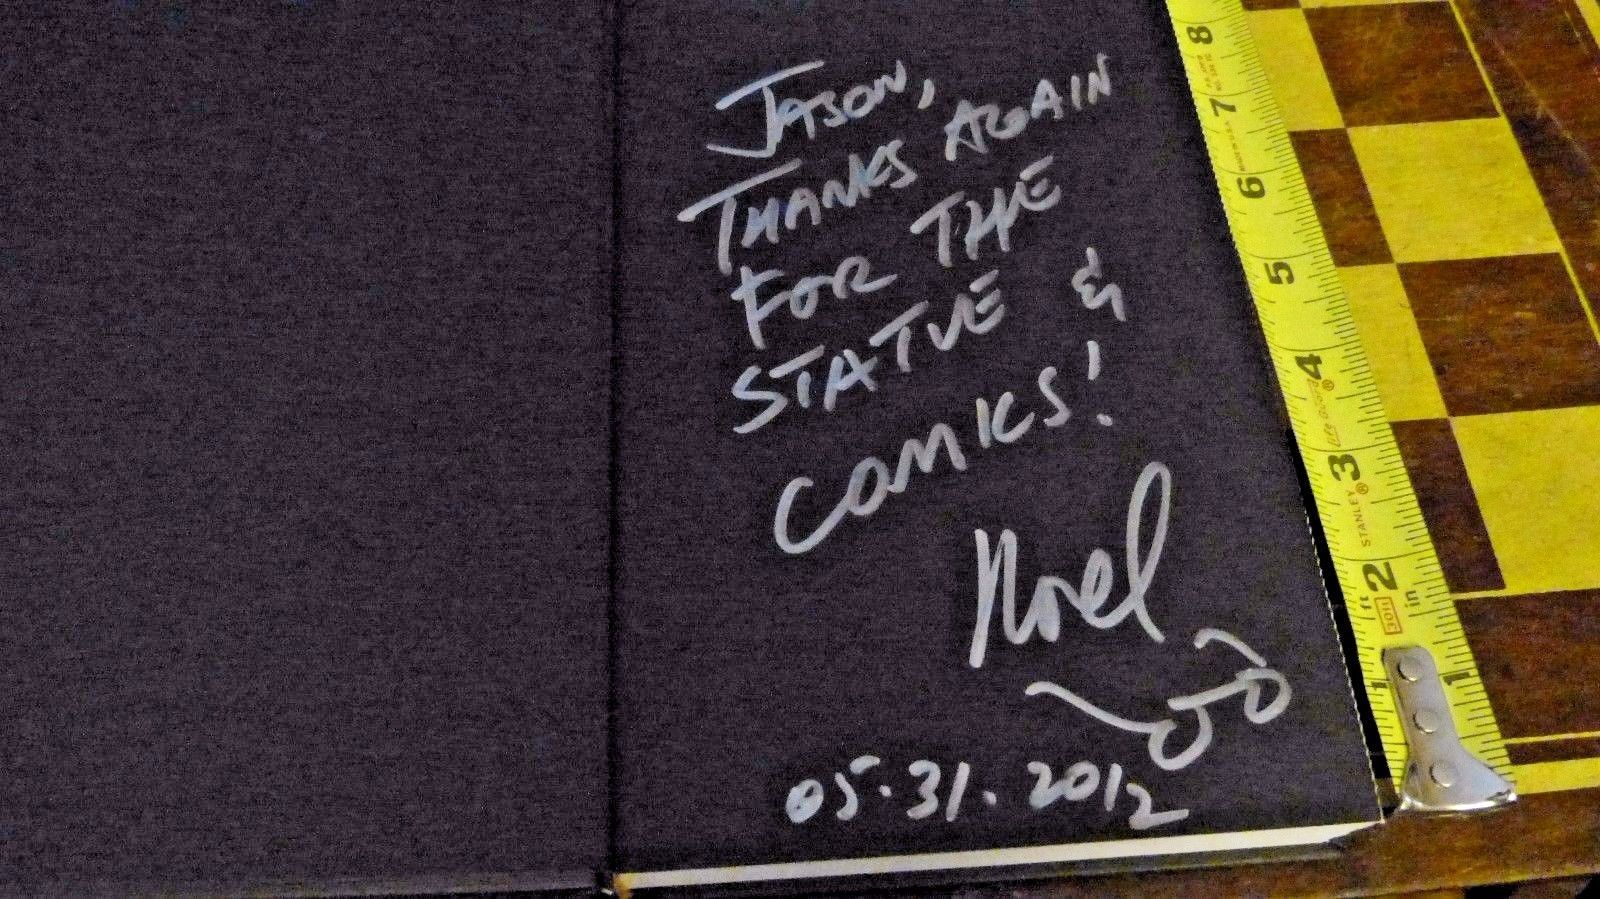 JASON,
THANKS AGAIN
FOR THE
STATUE &
COMICS!
Noel
05.31.2012
8
7
6
5
4
3
STANLEY®
2
ft
30ft
in
1
1